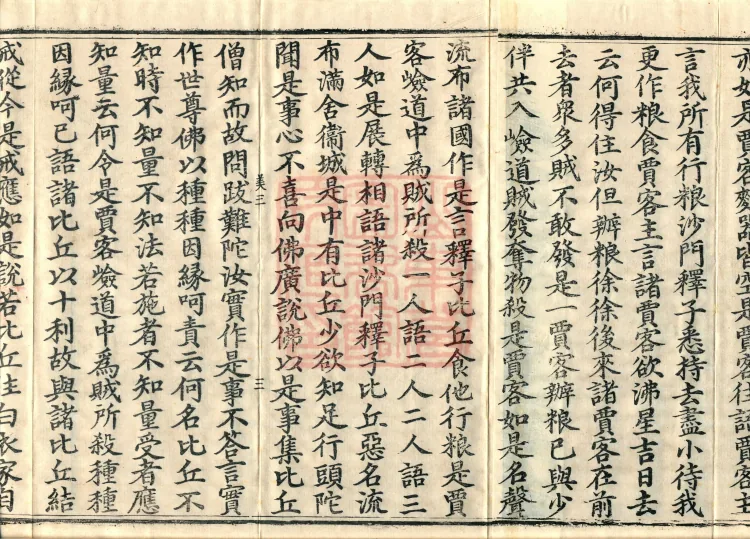 亦如是賈客
言我所有行粮沙門釋子悉持去盡小待我
更作粮食賈客主言諸賈客欲沸星吉日去
云何得住汝但辦粮徐徐後來諸賈客在前
去者衆多賊不敢發是一賈客辦粮已與少
伴共入嶮道賊發奪物殺是賈客如是名聲
流布諸國作是言釋子比丘食他行粮是賈
客嶮道中爲賊所殺一人語二人二人語三
人如是展轉相語諸沙門釋子比丘惡名流
布滿舍衞城是中有比丘少欲知足行頭陀
聞是事心不喜向佛廣說佛以是事集比丘
美三 三
僧知而故問跋難陀汝實作是事不答言實
作世尊佛以種種因緣呵責云何名比丘不
知時不知量不知法若施者不知量受者應
知量云何令是賈客嶮道中爲賊所殺種種
因緣呵已語諸比丘以十利故與諸比丘結
戒從今是戒應如是說若比丘往白衣家自